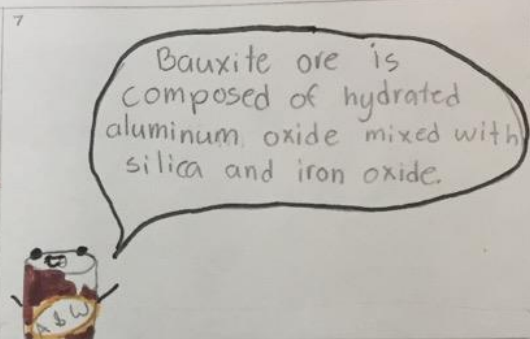 7
Bauxite ore is
composed of hydrated
aluminum oxide mixed with
silica and iron oxide.
A & W